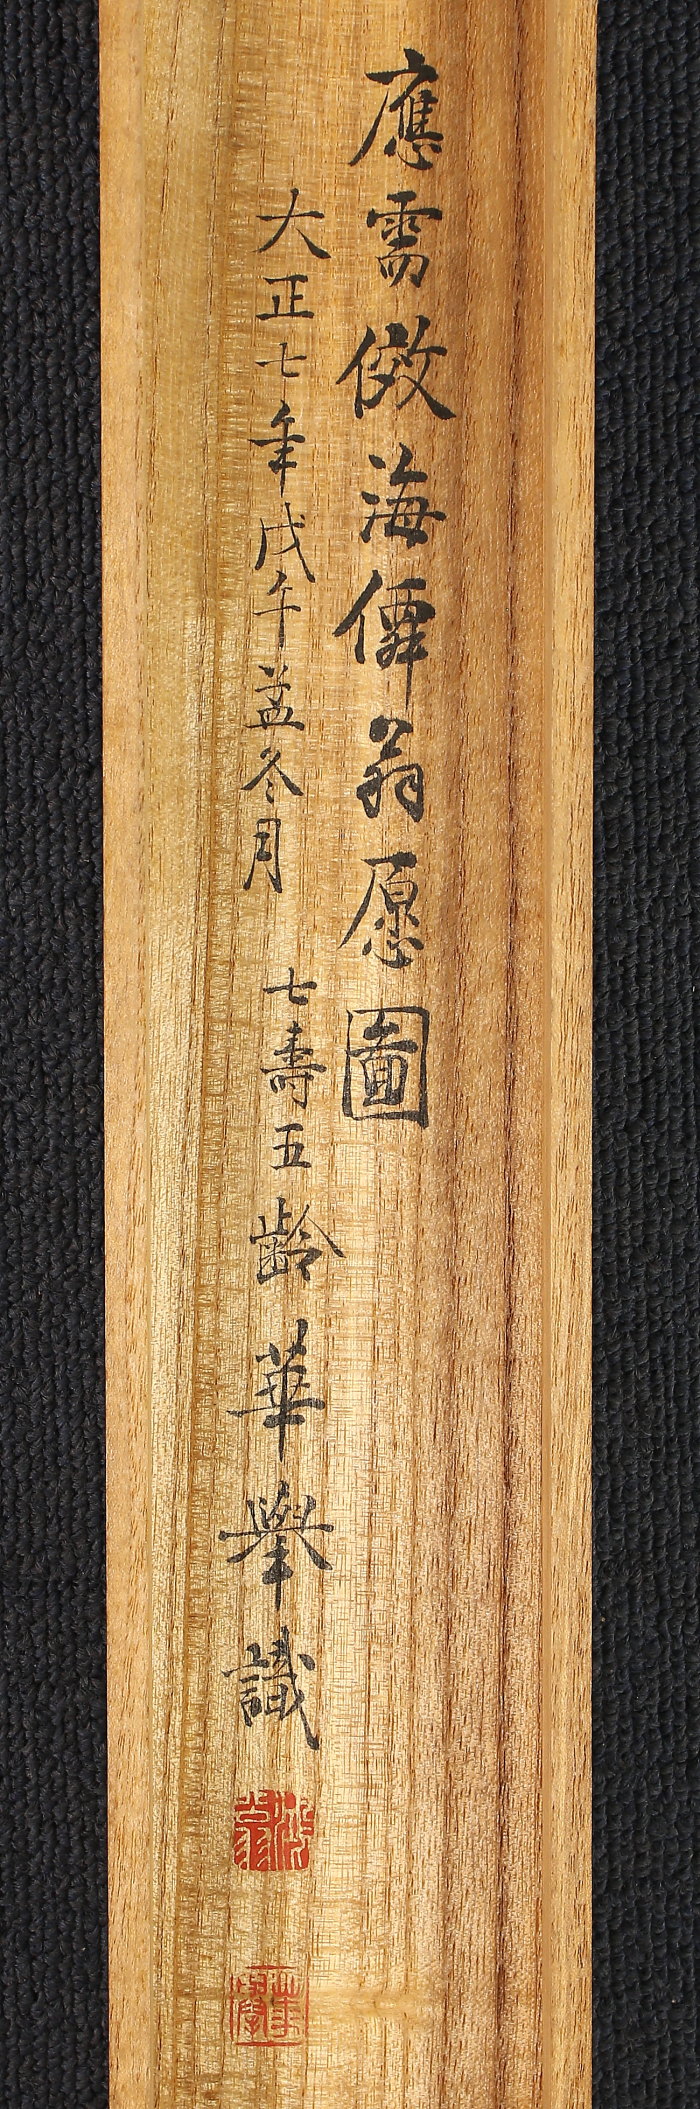 應需倣海僊翁愿圖
大正七年戊午孟冬月 七壽五齡華舉識